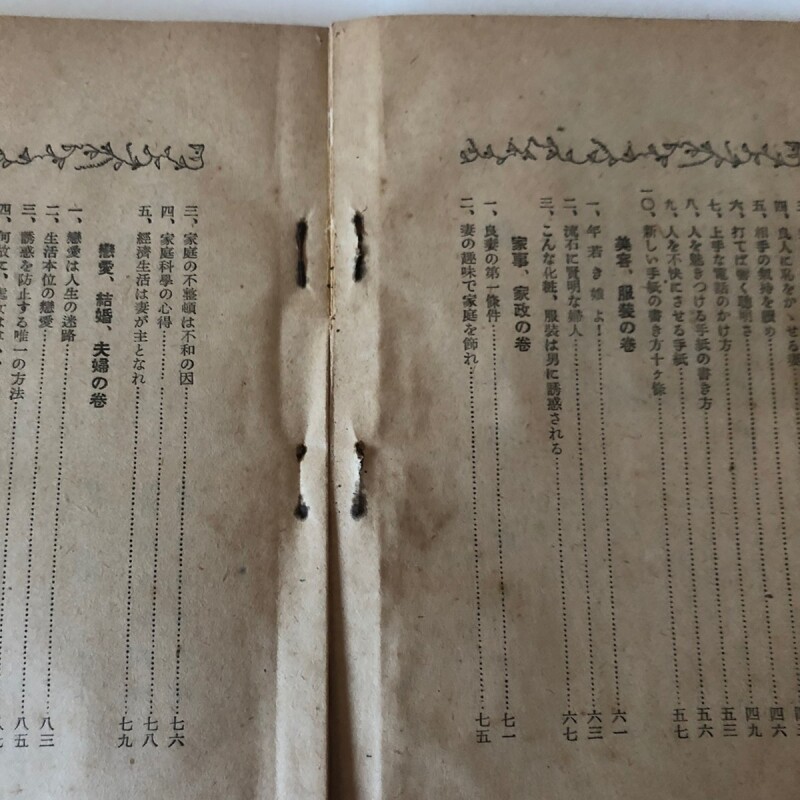 四、良人に恥をかゝせる妻
五、相手の氣持を讀め
六、打てば響く聰明さ……四六
七、上手な電話のかけ方……四九
八、人を魅きつける手紙の書き方……五三
九、人を不快にさせる手紙……五六
一〇、新しい手紙の書き方十ヶ條……五七
美容、服裝の卷
一、年若き娘よ！……六一
二、流石に賢明な婦人……六三
三、こんな化粧、服裝は男に誘惑される……六七
家事、家政の卷
一、良妻の第一條件……七一
二、妻の趣味で家庭を飾れ……七五
三、家庭の不整頓は不和の因……七六
四、家庭科學の心得……七八
五、經濟生活は妻が主となれ……七九
戀愛、結婚、夫婦の卷
一、戀愛は人生の迷路……八三
二、生活本位の戀愛……八五
三、誘惑を防止する唯一の方法
四、何故に、處女は